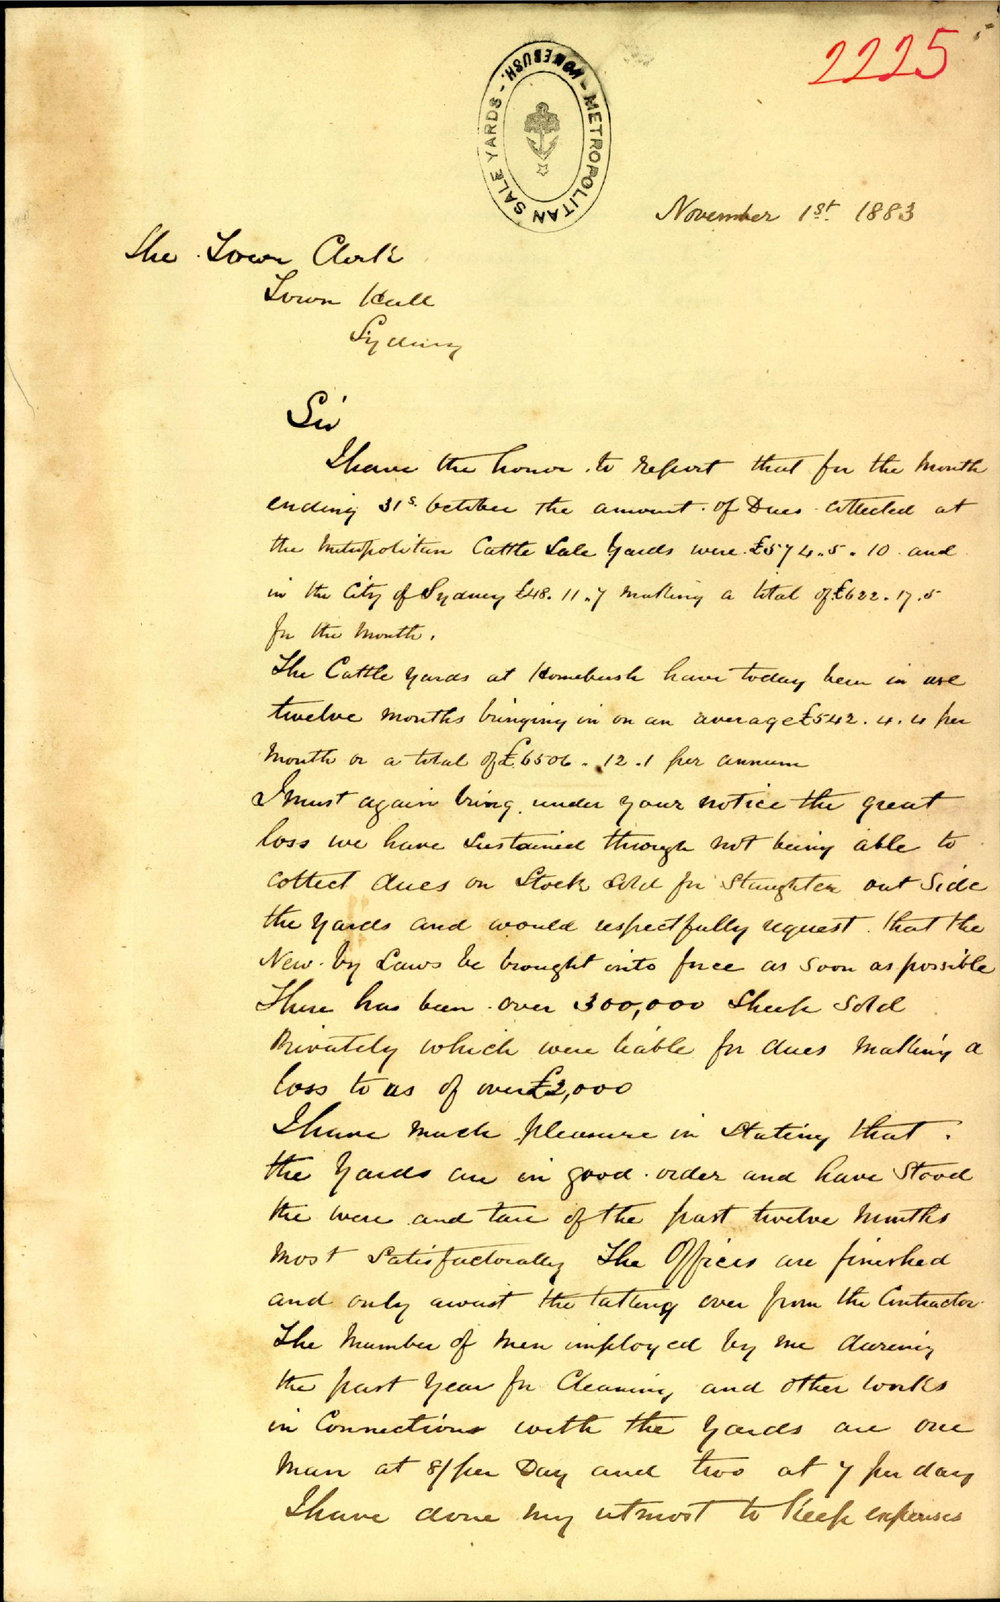 2225
METROPOLITAN SALE YARDS - HOMEBUSH.
November 1st. 1883
The Town Clerk
Town Hall
Sydney
Sir
I have the honor to report that for the Month
ending 31s. October the amount of Dues collected at
the Metropolitan Cattle Sale Yards were £574.5.10 and
in the City of Sydney £48.11.7 making a total of £622.17.5
for the Month.
The Cattle Yards at Homebush have today been in use
twelve months bringing in on an average £542.4.4 per
Month or a total of £6506.12.1 per annum
I must again bring under your notice the great
loss we have sustained through not being able to
collect dues on Stock sold for Slaughter out Side
the Yards and would respectfully request that the
New by Laws be brought into force as soon as possible
There has been over 300,000 Sheep Sold
Privately which were liable for dues making a
loss to us of over £2,000
I have much pleasure in stating that
the Yards are in good order and have stood
the were and tare of the past twelve Months
Most Satisfactorally The Offices are finished
and only await the taking over from the Contractor
The Number of Men employed by me dureing
the past Year for Cleaning and other works
in Connections with the Yards are one
Man at 8/ per Day and two at 7 per day
I have done my utmost to keep expenses